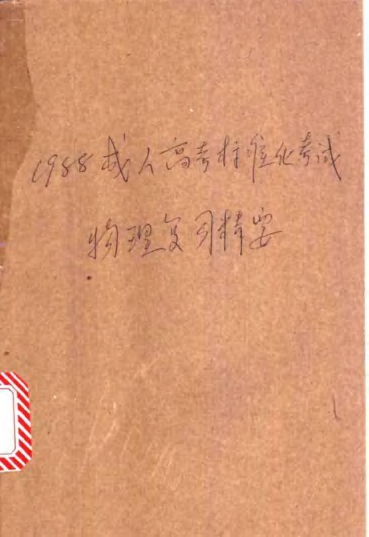 1988成人高考标准化考试
物理复习精要